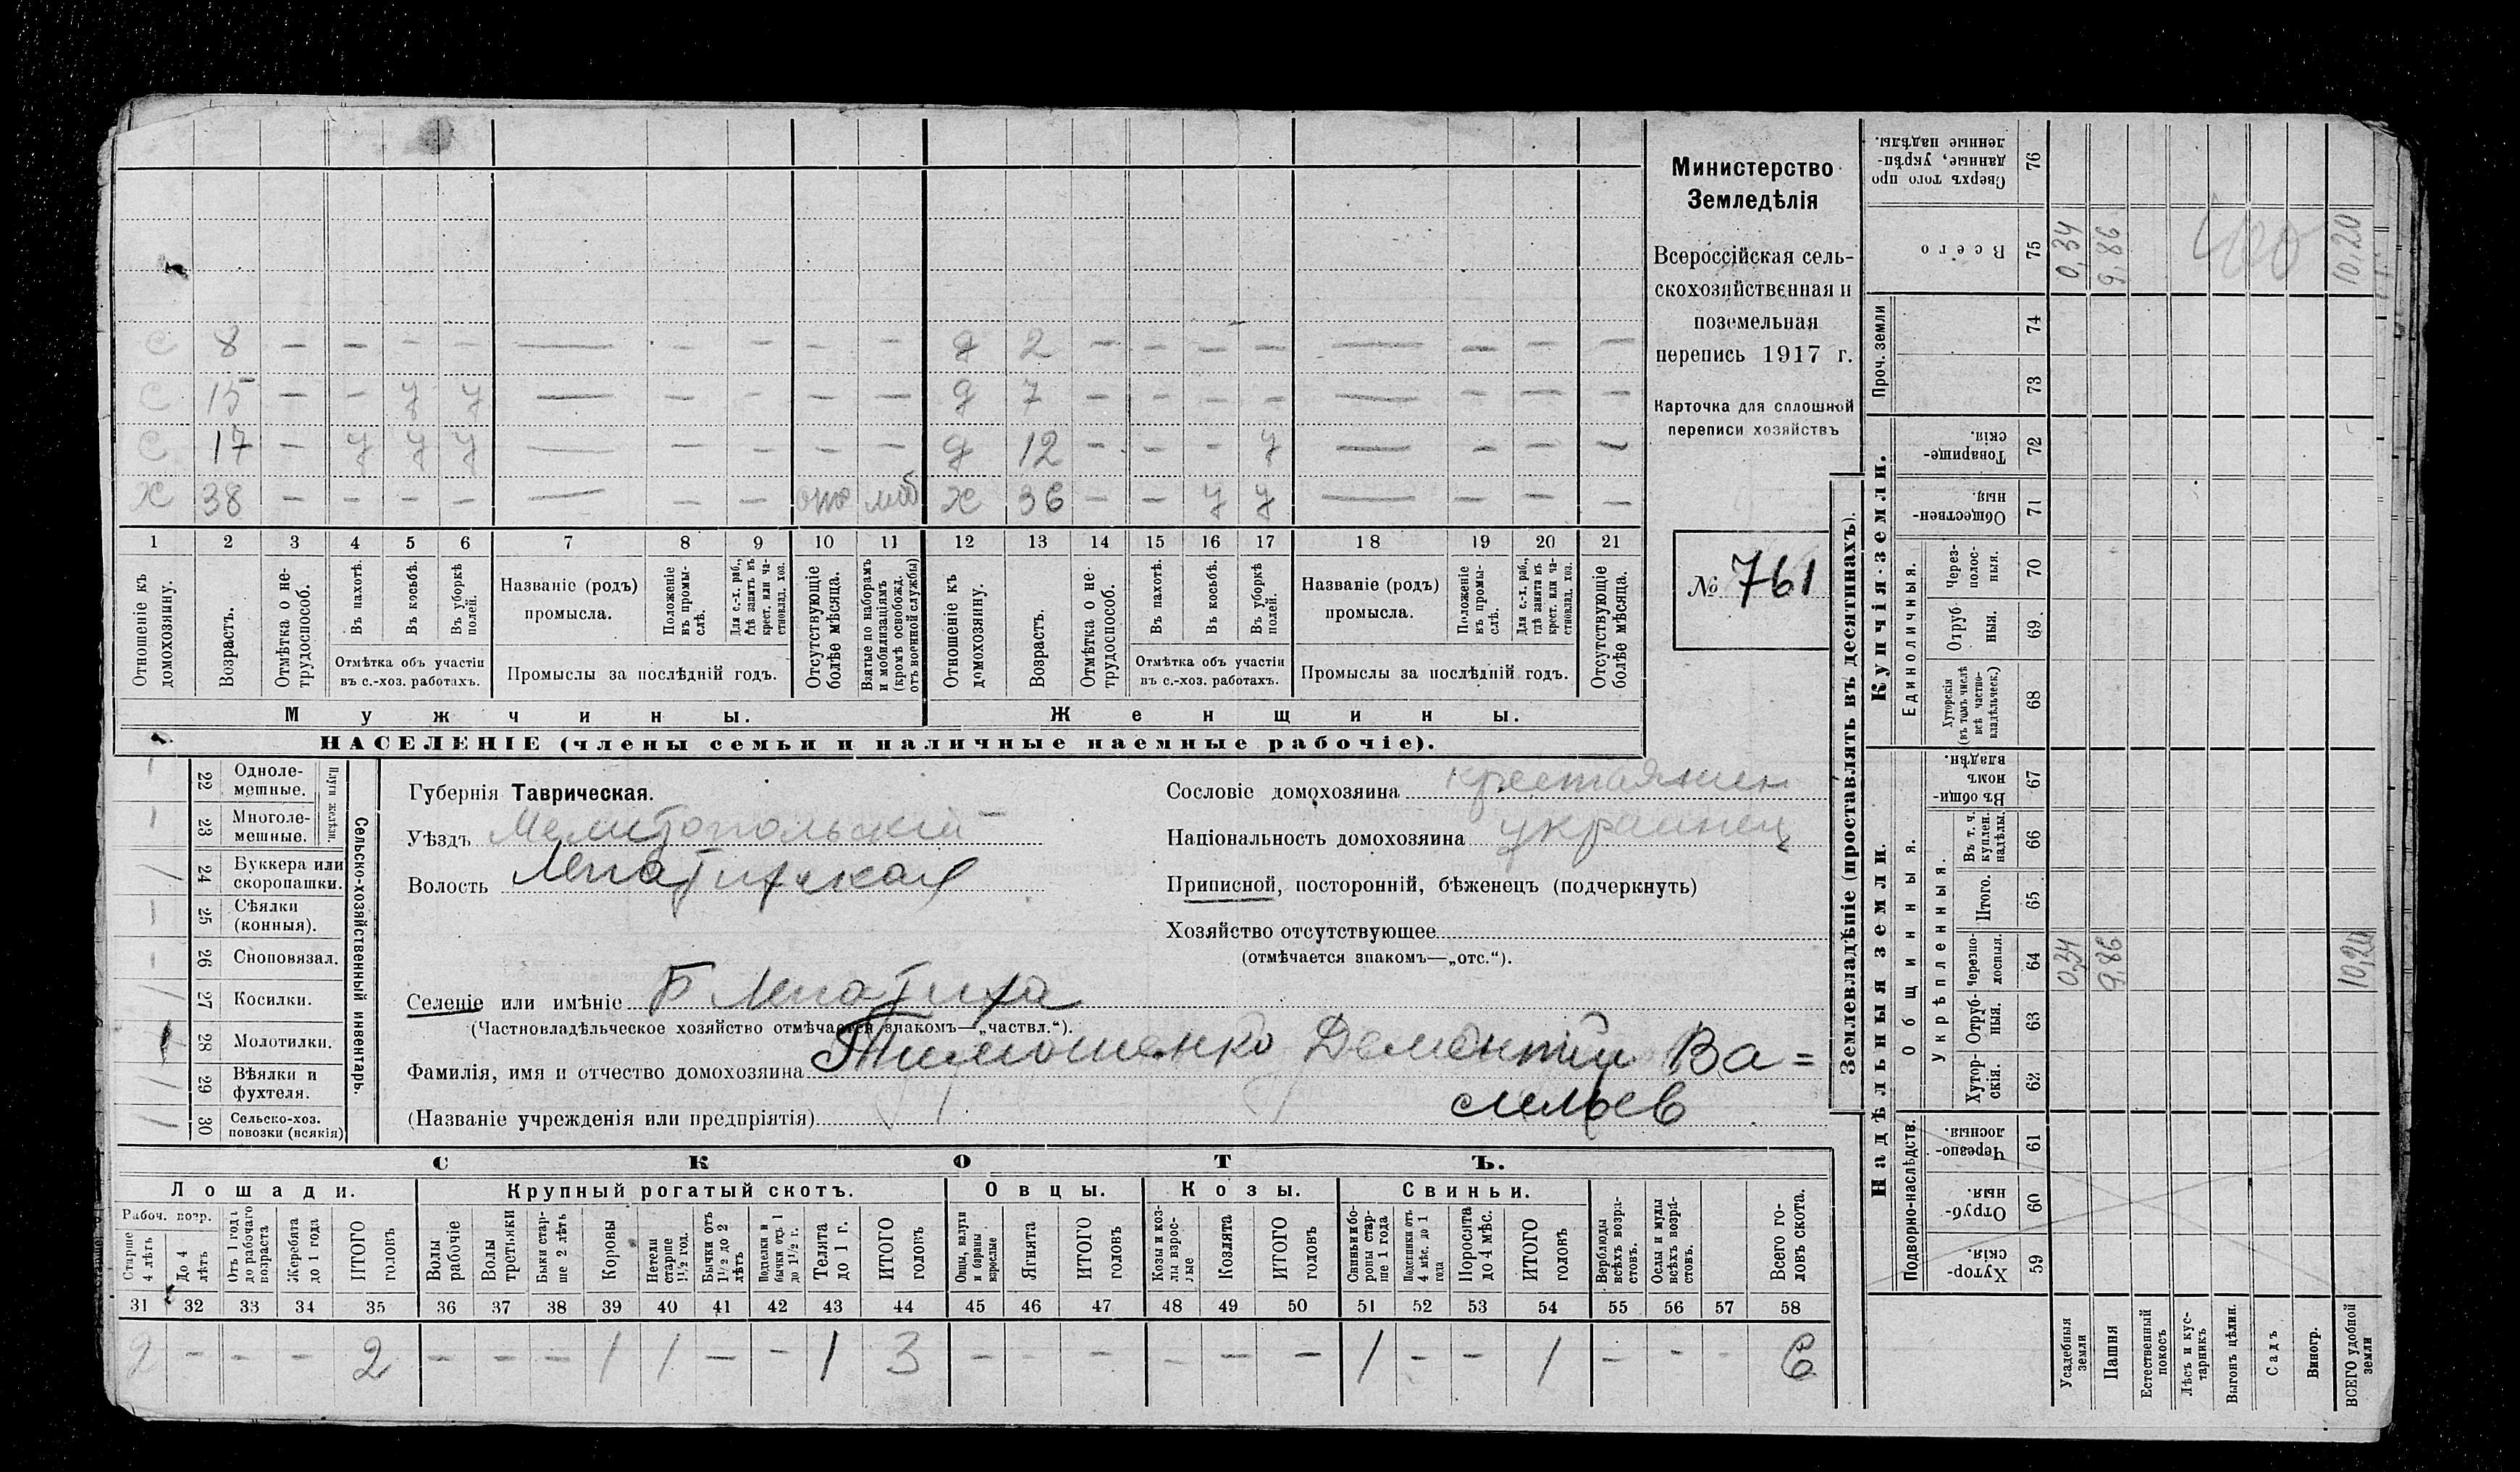 с 8 — — — — — — — — — д 2 — — — — — — — —
с 15 — — у у — — — — — д 7 — — — — — — — —
с 17 — у у у — — — — — д 12 — — — у — — — —
х 38 — — — — — — — отс моб х 36 — — у у — — — —
1 2 3 4 5 6 7 8 9 10 11 12 13 14 15 16 17 18 19 20 21
Отношеніе къ домохозяину.
Возрастъ.
Отмѣтка о не-трудоспособ.
Въ пахотѣ.
Въ косьбѣ.
Въ уборкѣ полей.
Отмѣтка объ участіи
въ с.-хоз. работахъ.
Названіе (родъ)
промысла.
Положеніе въ промы-слѣ.
Для с.-х. раб., гдѣ занятъ въ крест. или ча-стновлад. хоз.
Промыслы за послѣдній годъ.
Отсутствующіе болѣе мѣсяца.
Взятые по наборамъ и мобилизаціямъ (кромѣ освобожд. отъ военной службы)
Отношеніе къ домохозяину.
Возрастъ.
Отмѣтка о не-трудоспособ.
Въ пахотѣ.
Въ косьбѣ.
Въ уборкѣ полей.
Отмѣтка объ участіи
въ с.-хоз. работахъ.
Названіе (родъ)
промысла.
Положеніе въ промы-слѣ.
Для с.-х. раб., гдѣ занята въ крест. или ча-стновлад. хоз.
Промыслы за послѣдній годъ.
Отсутствующіе болѣе мѣсяца.
Мужчины. Женщины.
НАСЕЛЕНІЕ (члены семьи и наличные наемные рабочіе).
Министерство
Земледѣлія
Всероссійская сель-
скохозяйственная и
поземельная
перепись 1917 г.
Карточка для сплошной
переписи хозяйствъ
№ 761
Сельско-хозяйственный инвентарь.
Плуги желѣзн.
22 Одноле-мешные.
1 23 Многоле-мешные.
24 Буккера или скоропашки.
25 Сѣялки (конныя).
26 Сноповязал.
27 Косилки.
28 Молотилки.
29 Вѣялки и фухтеля.
30 Сельско-хоз. повозки (всякія)
Губернія Таврическая.
Уѣздъ Мелитопольскій
Волость Лепатихская
Селеніе или имѣніе Б Лепатиха
(Частновладѣльческое хозяйство отмѣчается знакомъ—„частвл.“).
Фамилія, имя и отчество домохозяина Тимошенко Дементий Ва=
сильев
(Названіе учрежденія или предпріятія)
Сословіе домохозяина крестьянин
Національность домохозяина украинец
Приписной, посторонній, бѣженецъ (подчеркнуть)
Хозяйство отсутствующее
(отмѣчается знакомъ—„отс.“).
СКОТЪ.
Лошади. Крупный рогатый скотъ. Овцы. Козы. Свиньи.
Рабоч. возр.
Старше 4 лѣтъ
До 4 лѣтъ
Отъ 1 года до рабочаго возраста
Жеребята до 1 года
ИТОГО головъ
Волы рабочіе
Волы третьяки
Быки стар-ше 2 лѣтъ
Коровы
Нетели старше 1½ год.
Бычки отъ 1½ до 2 лѣтъ
Подтелки и бычки отъ 1 до 1½ г.
Телята до 1 г.
ИТОГО головъ
Овцы, валухи и бараны взрослые
Ягнята
ИТОГО головъ
Козы и коз-лы взрос-лые
Козлята
ИТОГО головъ
Свиньи и бо-ровы стар-ше 1 года
Подсвинки отъ 4 мѣс. до 1 года
Поросята до 4 мѣс.
ИТОГО головъ
Верблюды всѣхъ возра-стовъ.
Ослы и мулы всѣхъ возра-стовъ.
Всего го-ловъ скота.
31 32 33 34 35 36 37 38 39 40 41 42 43 44 45 46 47 48 49 50 51 52 53 54 55 56 57 58
2 — — — 2 — — — 1 1 — — 1 3 — — — — — — 1 — — 1 — — — 6
Землевладѣніе (проставлять въ десятинахъ).
Надѣльныя земли. Купчія земли.
Подворно-наслѣдств.
Общинныя.
Укрѣпленныя.
Единоличныя.
Проч. земли
Хутор-скія. 59
Отруб-ныя. 60
Черезпо-лосныя. 61
Хутор-скія. 62
Отруб-ныя. 63
Черезпо-лосныя. 64 0,34 9,86 10,20
Итого. 65
Въ т. ч. куплен. надѣлы. 66
Въ общин-номъ владѣн. 67
Хуторскія (въ томъ числѣ всѣ частно-владѣльческ.) 68
Отруб-ныя. 69
Через-полос-ныя. 70
Обществен-ныя. 71
Товарище-скія. 72
73
74
Всего 75 0,34 9,86 400 10,20
Сверхъ того про-данные, укрѣп-ленные надѣлы. 76
Усадебныя земли
Пашня
Естественный покосъ
Лѣсъ и кус-тарникъ
Выгонъ цѣлин.
Садъ
Виногр.
ВСЕГО удобной земли